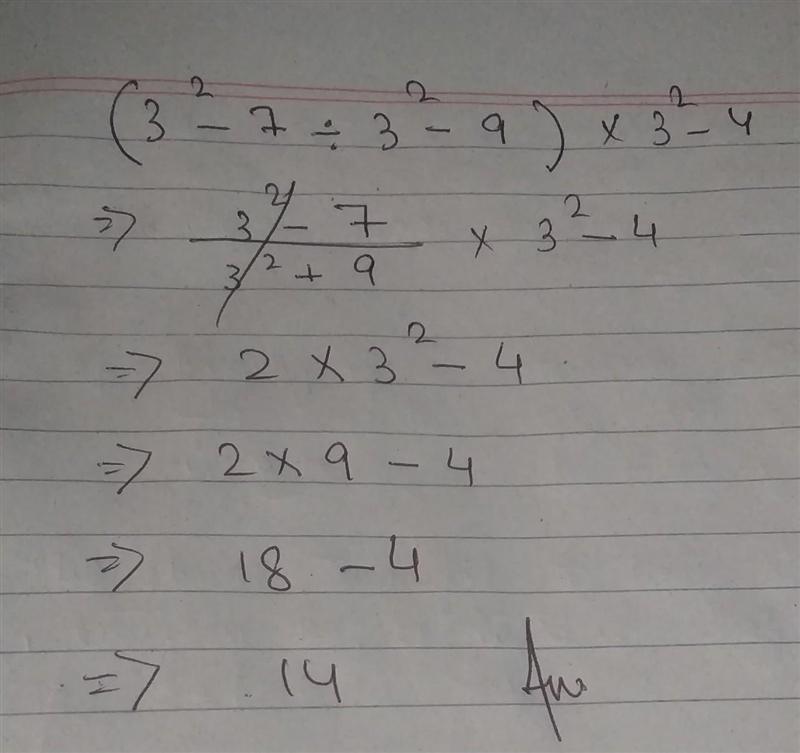 (3² - 7 ÷ 3² - 9) × 3² - 4
⇒ 3² - 7 / 3² + 9 × 3² - 4
⇒ 2 × 3² - 4
⇒ 2 × 9 - 4
⇒ 18 - 4
⇒ 14 Ans